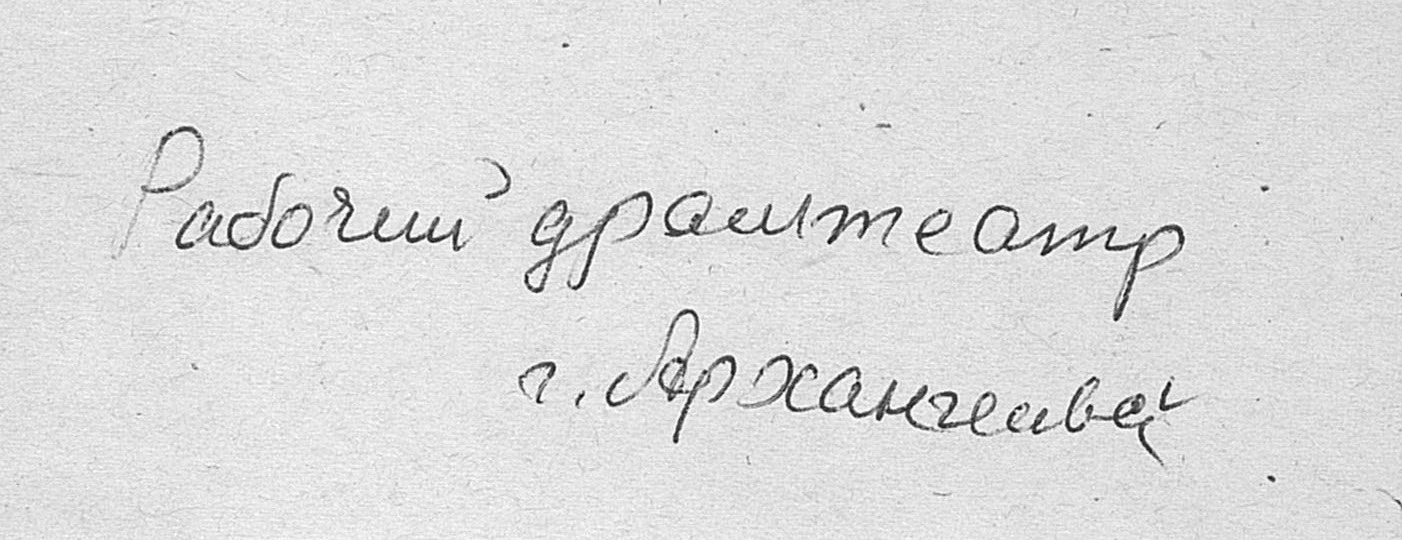 Рабочий драмтеатр
г. Архангельск